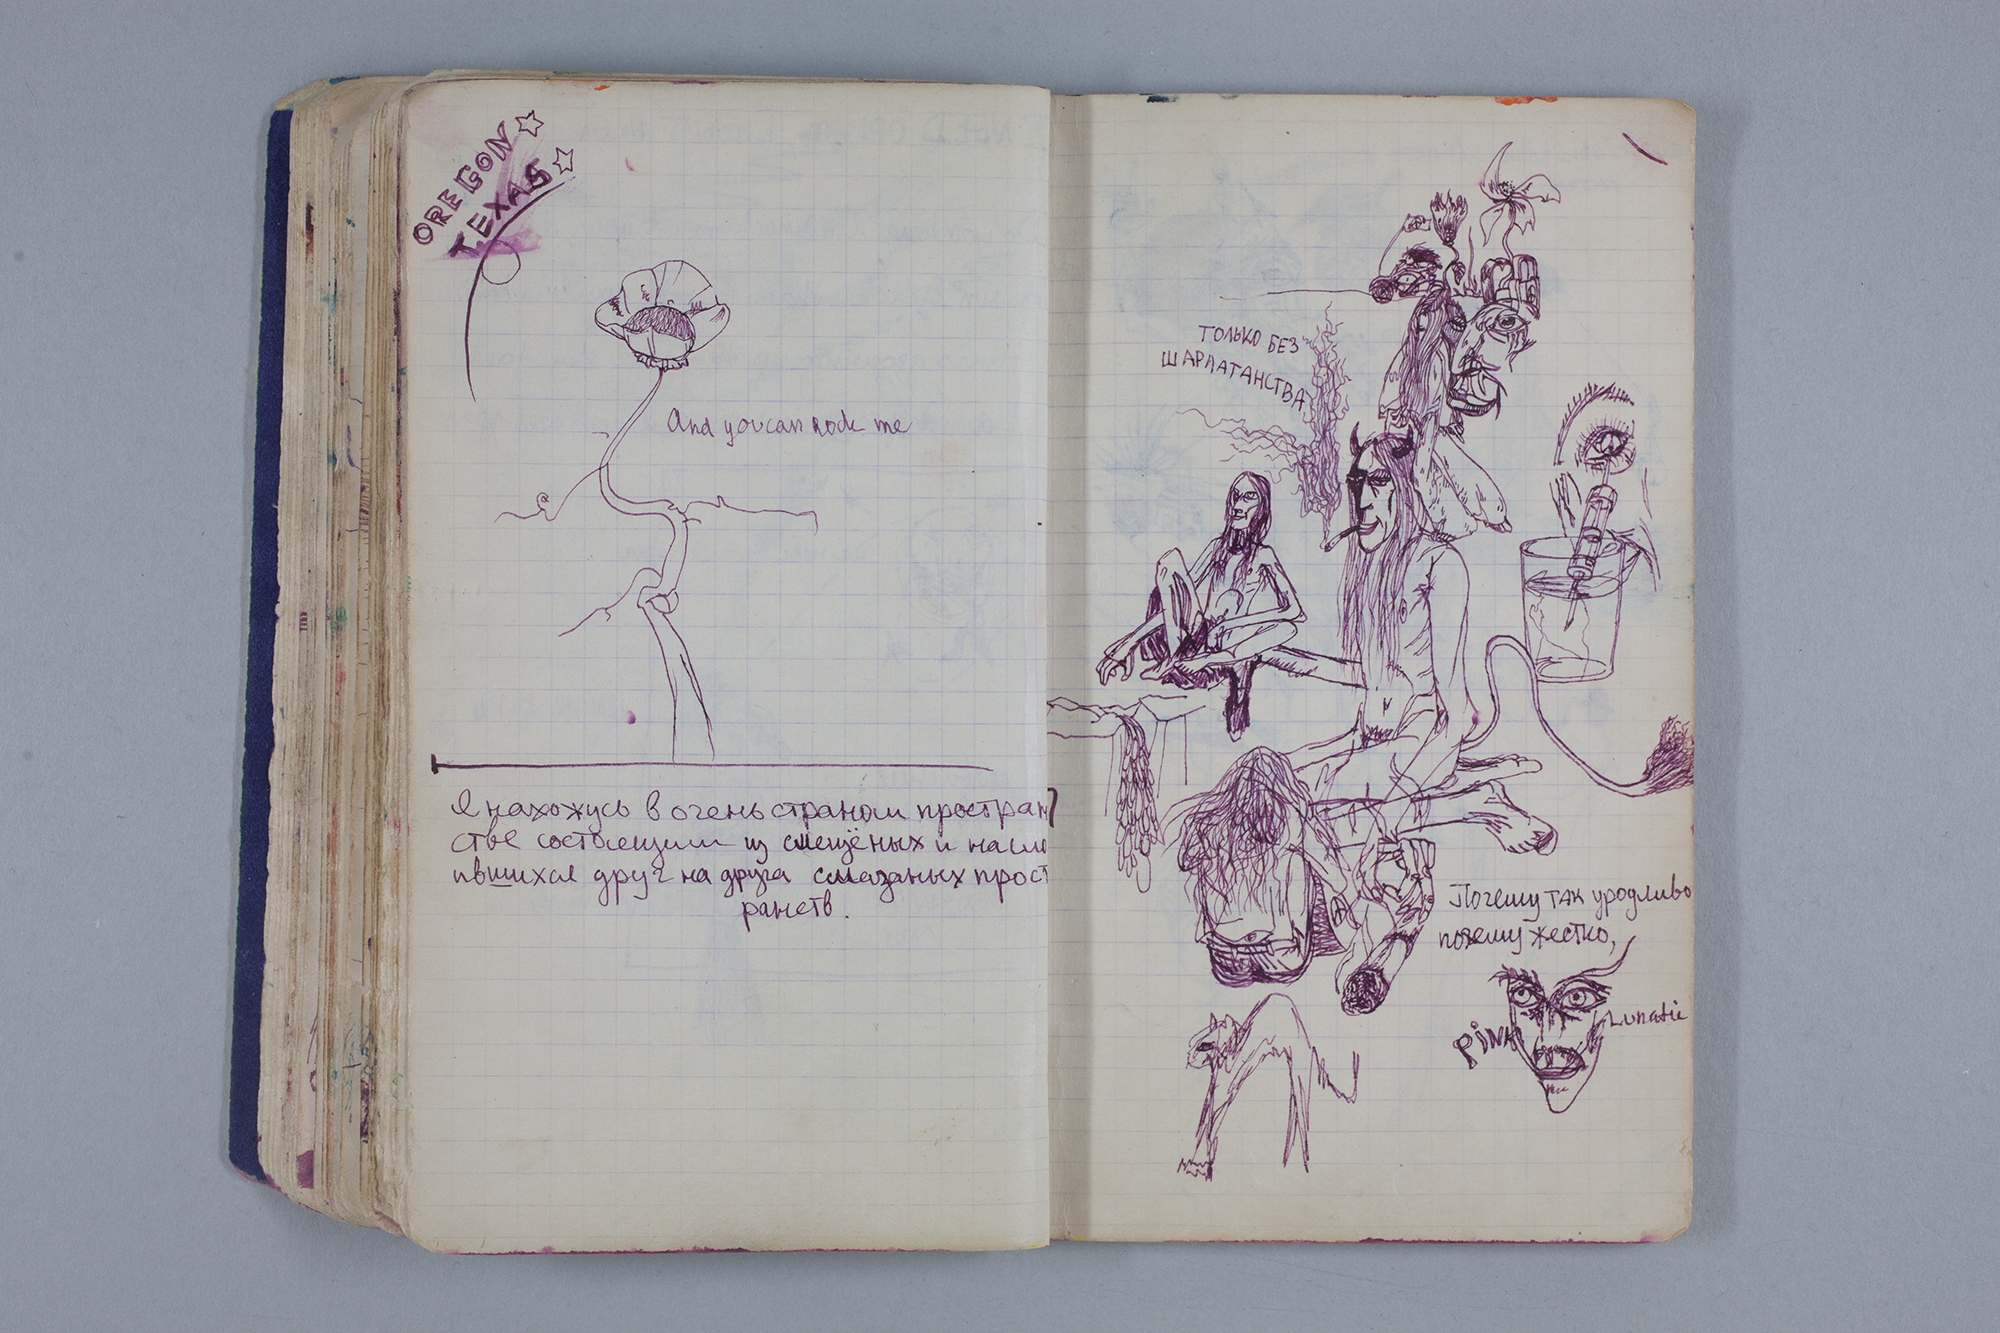 OREGON
TEXAS
And you can node me
Я нахожусь в очень страном простран
стве состоящим из смещёных и насло
ившихся друг на друга смазаных прост
ранств.
ТОЛЬКО БЕЗ
ШАРЛАТАНСТВА
Почему так уродливо
почему жестко,
PINK
Lunatic